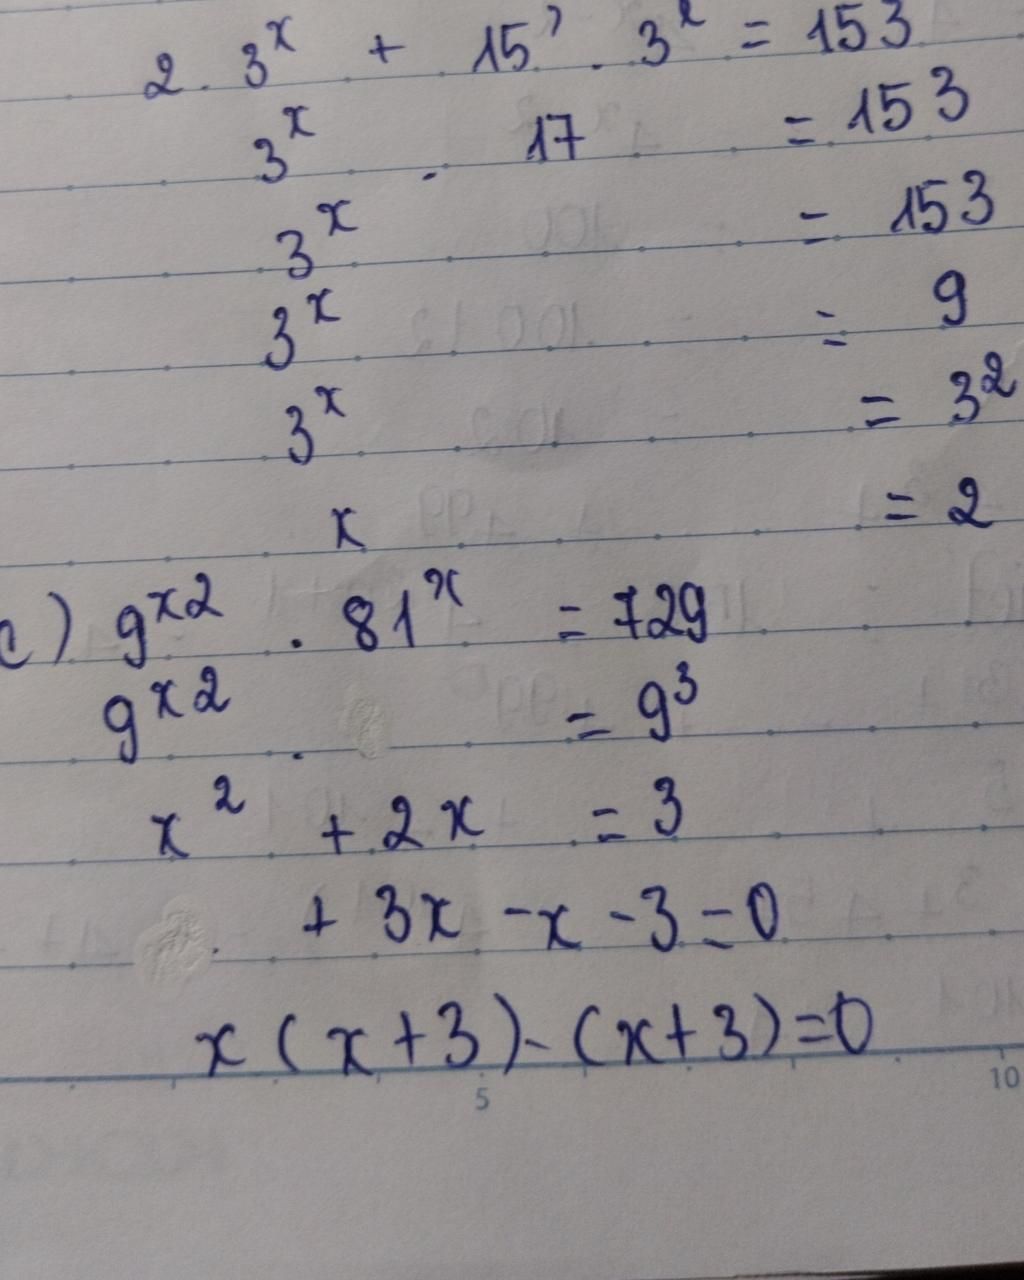 2 . 3^x + 15 . 3^x = 153
3^x . 17 = 153
3^x = 153
3^x = 9
3^x = 3^2
x = 2
c) 9^x2 . 81^x = 729
9^x2 . = 9^3
x^2 + 2x = 3
+ 3x - x - 3 = 0
x ( x + 3 ) - ( x + 3 ) = 0
5 10